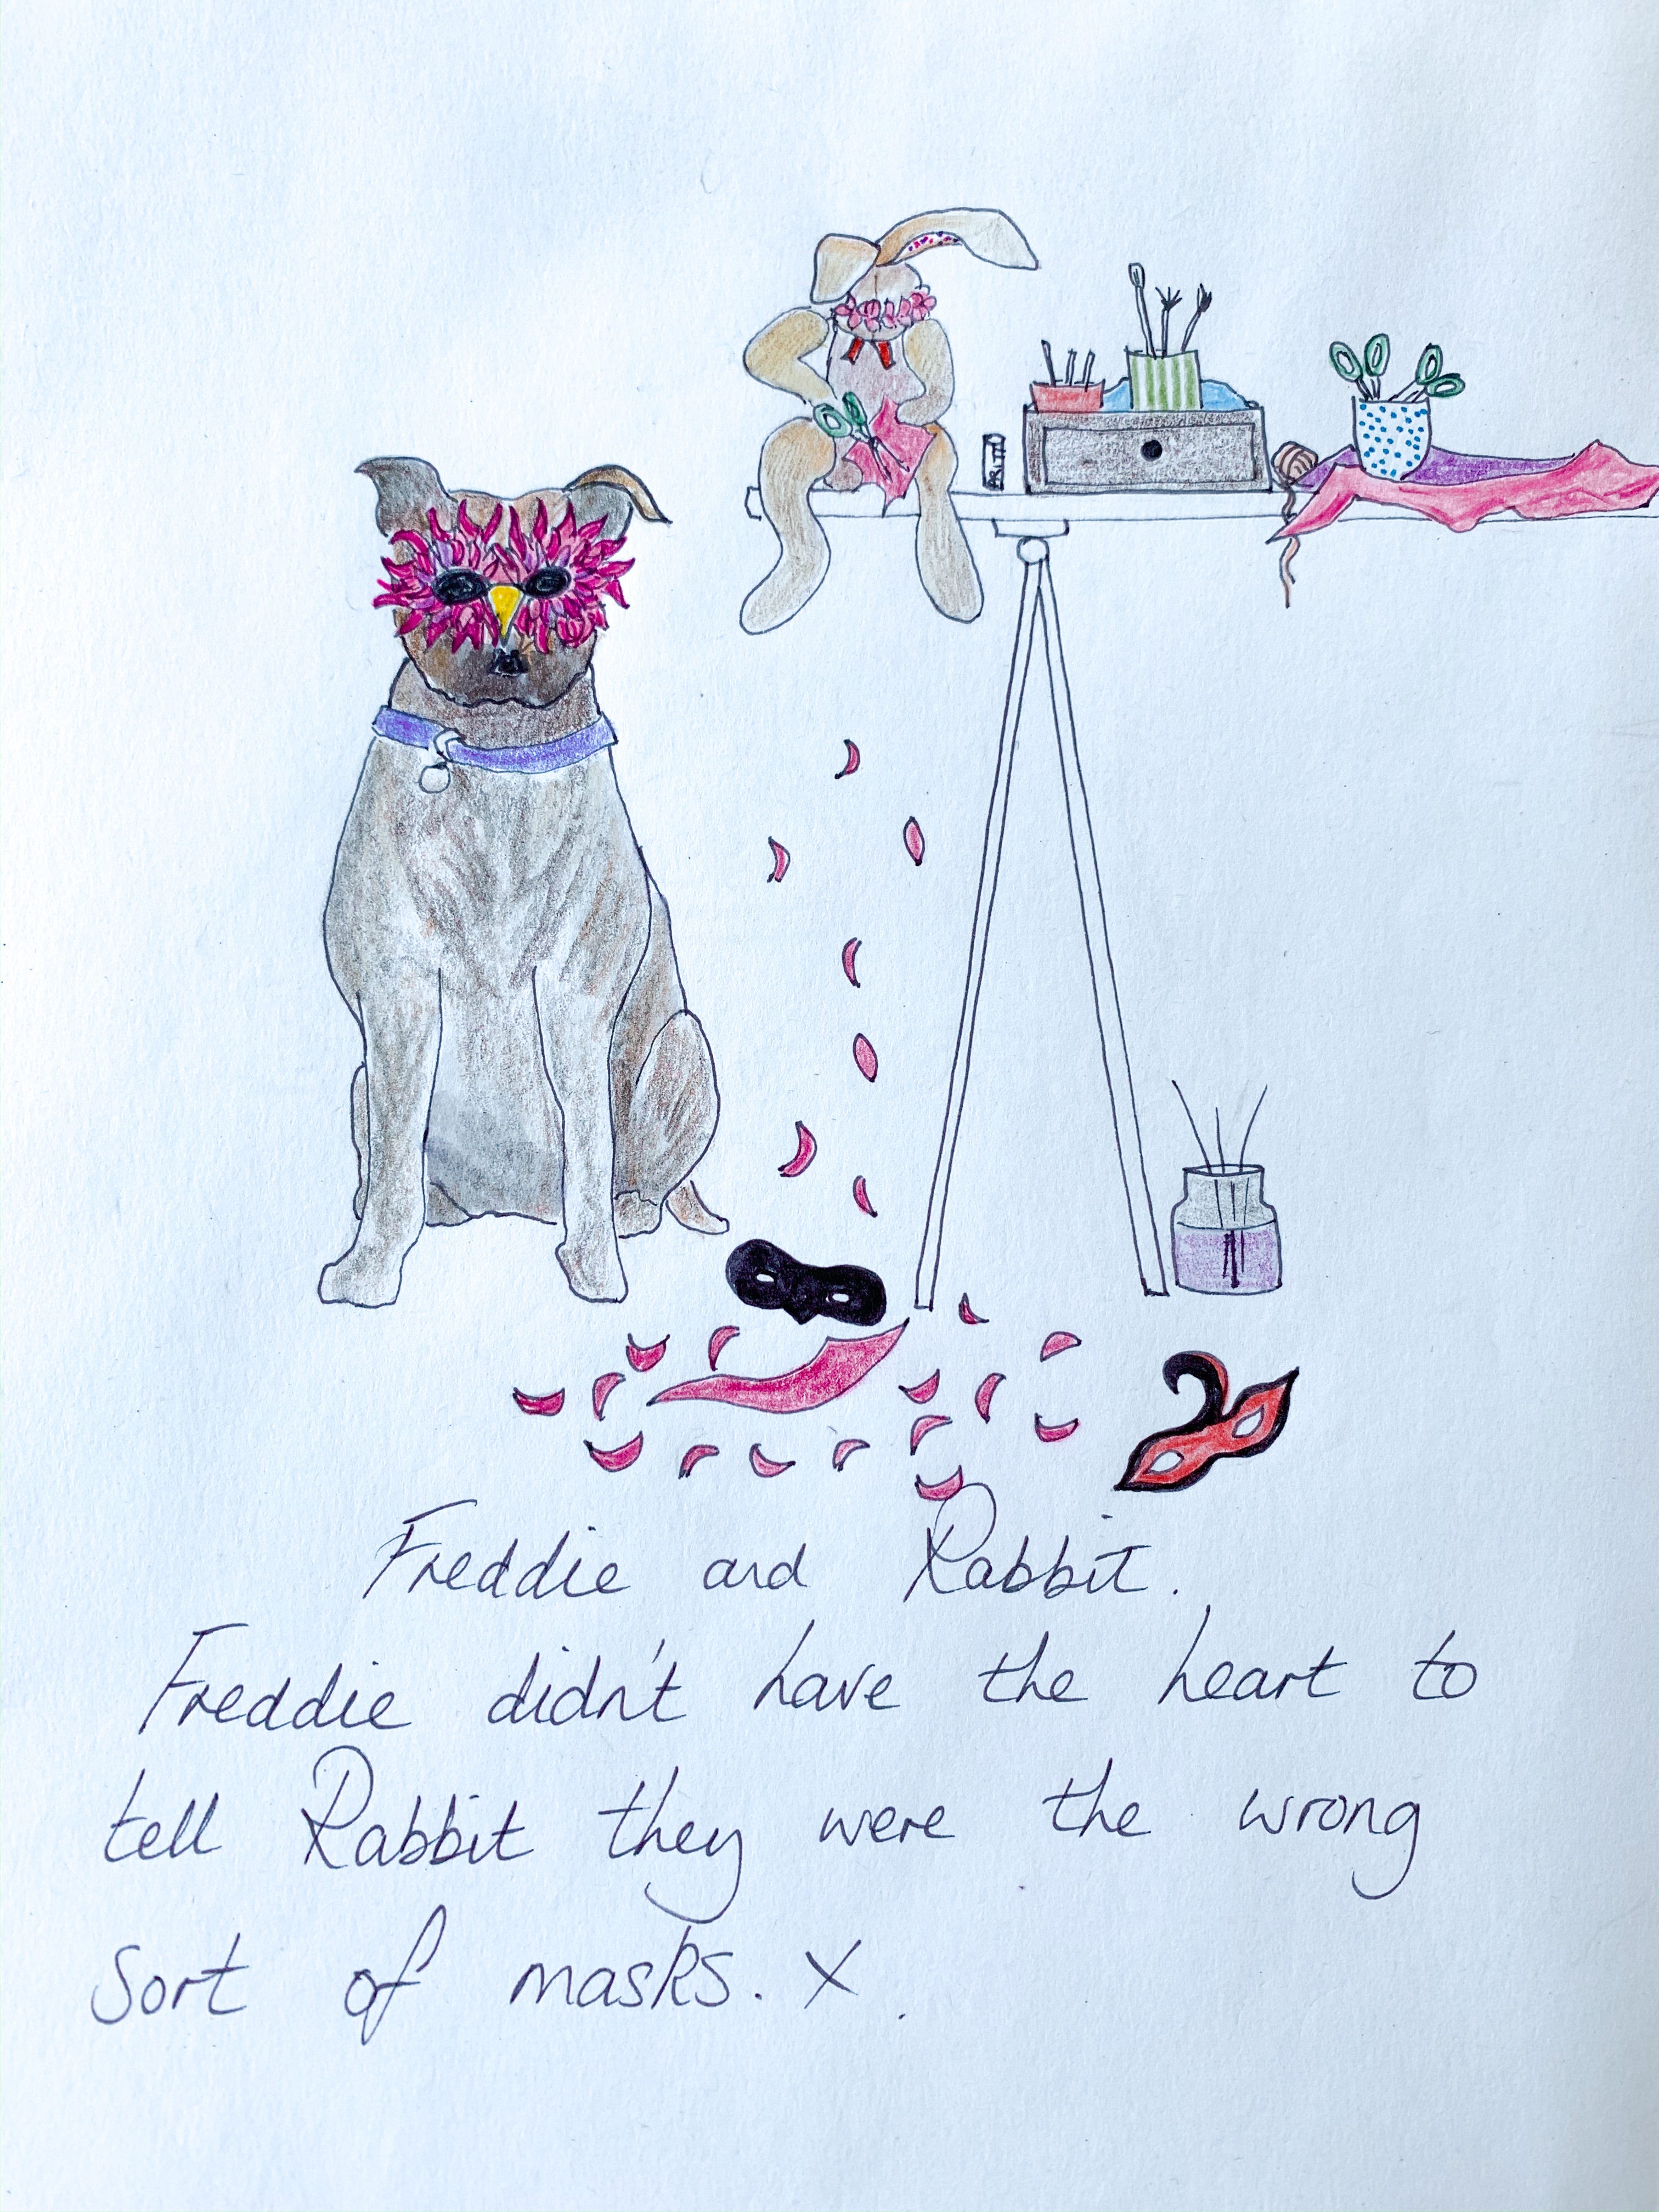 PRITT
Freddie and Rabbit.
Freddie didn't have the heart to
tell Rabbit they were the wrong
sort of masks. x.